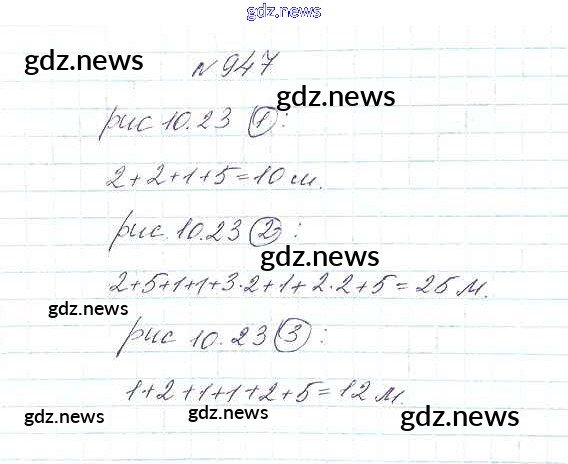 gdz.news
gdz.news
№ 947
gdz.news
рис 10.23 ①:
2+2+1+5=10 м.
рис. 10.23 ②:
gdz.news
2+5+1+1+3·2+1+2·2+5=25 м.
gdz.news
рис 10.23 ③:
1+2+1+1+2+5=12 м.
gdz.news
gdz.news
gdz.news